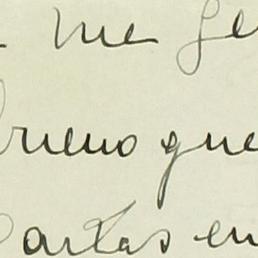 me ge
bueno que
Cartas en